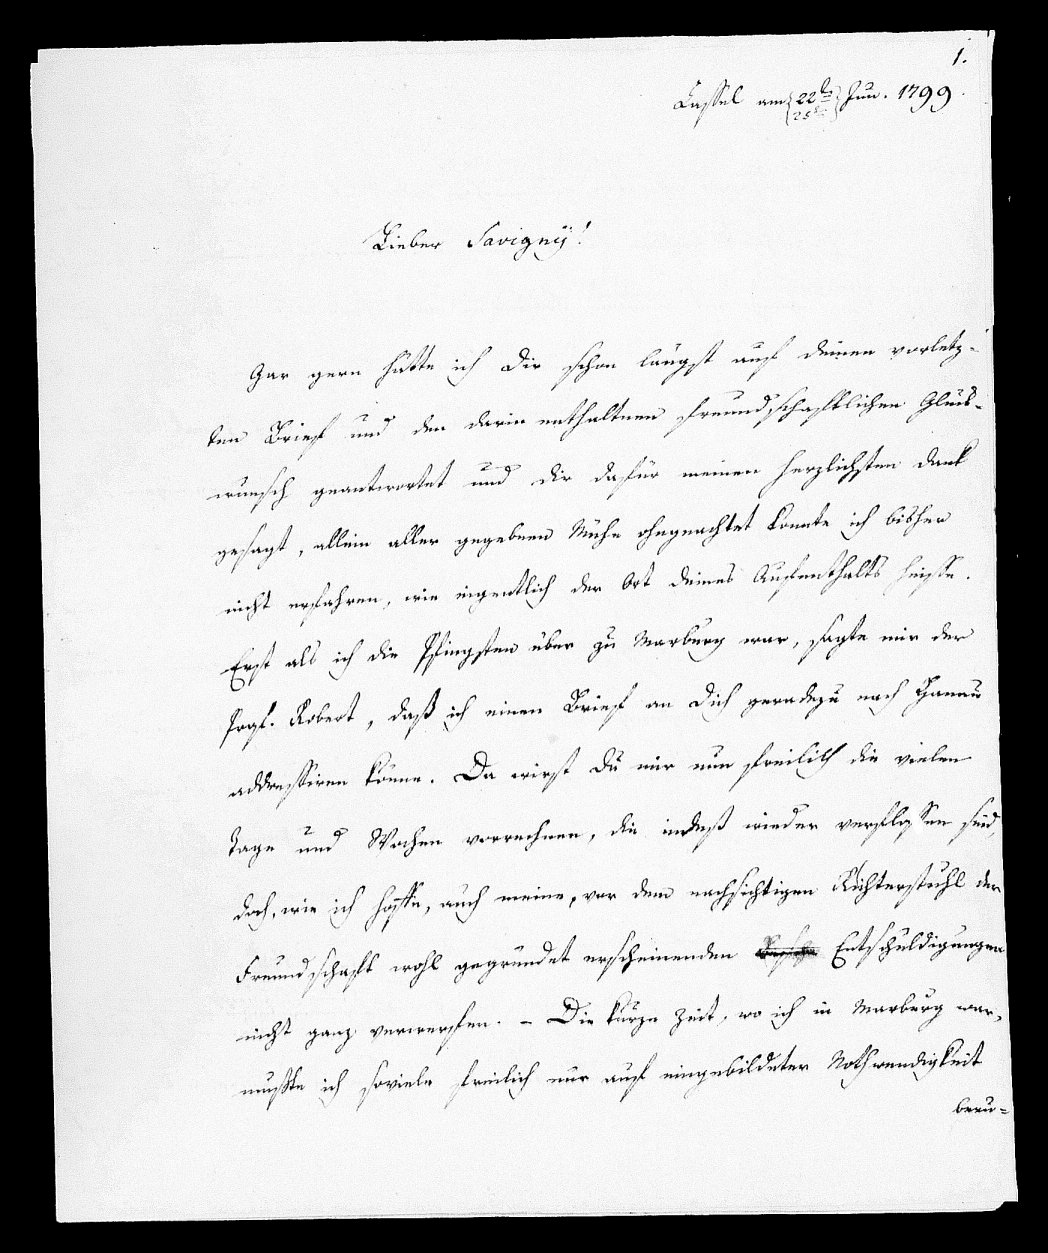 1.
Cassel am 22ten Jun. 1799.
25ten
Lieber Savigny!
Gar gern hätte ich Dir schon längst auf deinen vorletz-
ten Brief und den darin enthaltnen freundschaftlichen Glück-
wunsch geantwortet und dir dafür meinen herzlichsten Dank
gesagt, allein aller gegebenen Mühe ohngeachtet konnte ich bisher
nicht erfahren, wie eigentlich der Ort deines Aufenthalts heisse.
Erst als ich die Pfingsten über zu Marburg war, sagte mir der
Prof. Robert, daß ich einen Brief an Dich geradezu nach Hanau
addressiren könne. Da wirst Du mir nun freilich die vielen
Tage und Wochen vorrechnen, die indeß wieder verflossen sind
doch, wie ich hoffe, auch meine, vor dem nachsichtigen Richterstuhl der
Freundschaft wohl gegründet erscheinenden Entschuldigungen
nicht ganz verwerfen. – Die kurze Zeit, wo ich in Marburg war,
mußte ich soviele freilich nur auf eingebildeter Nothwendigkeit
beru-